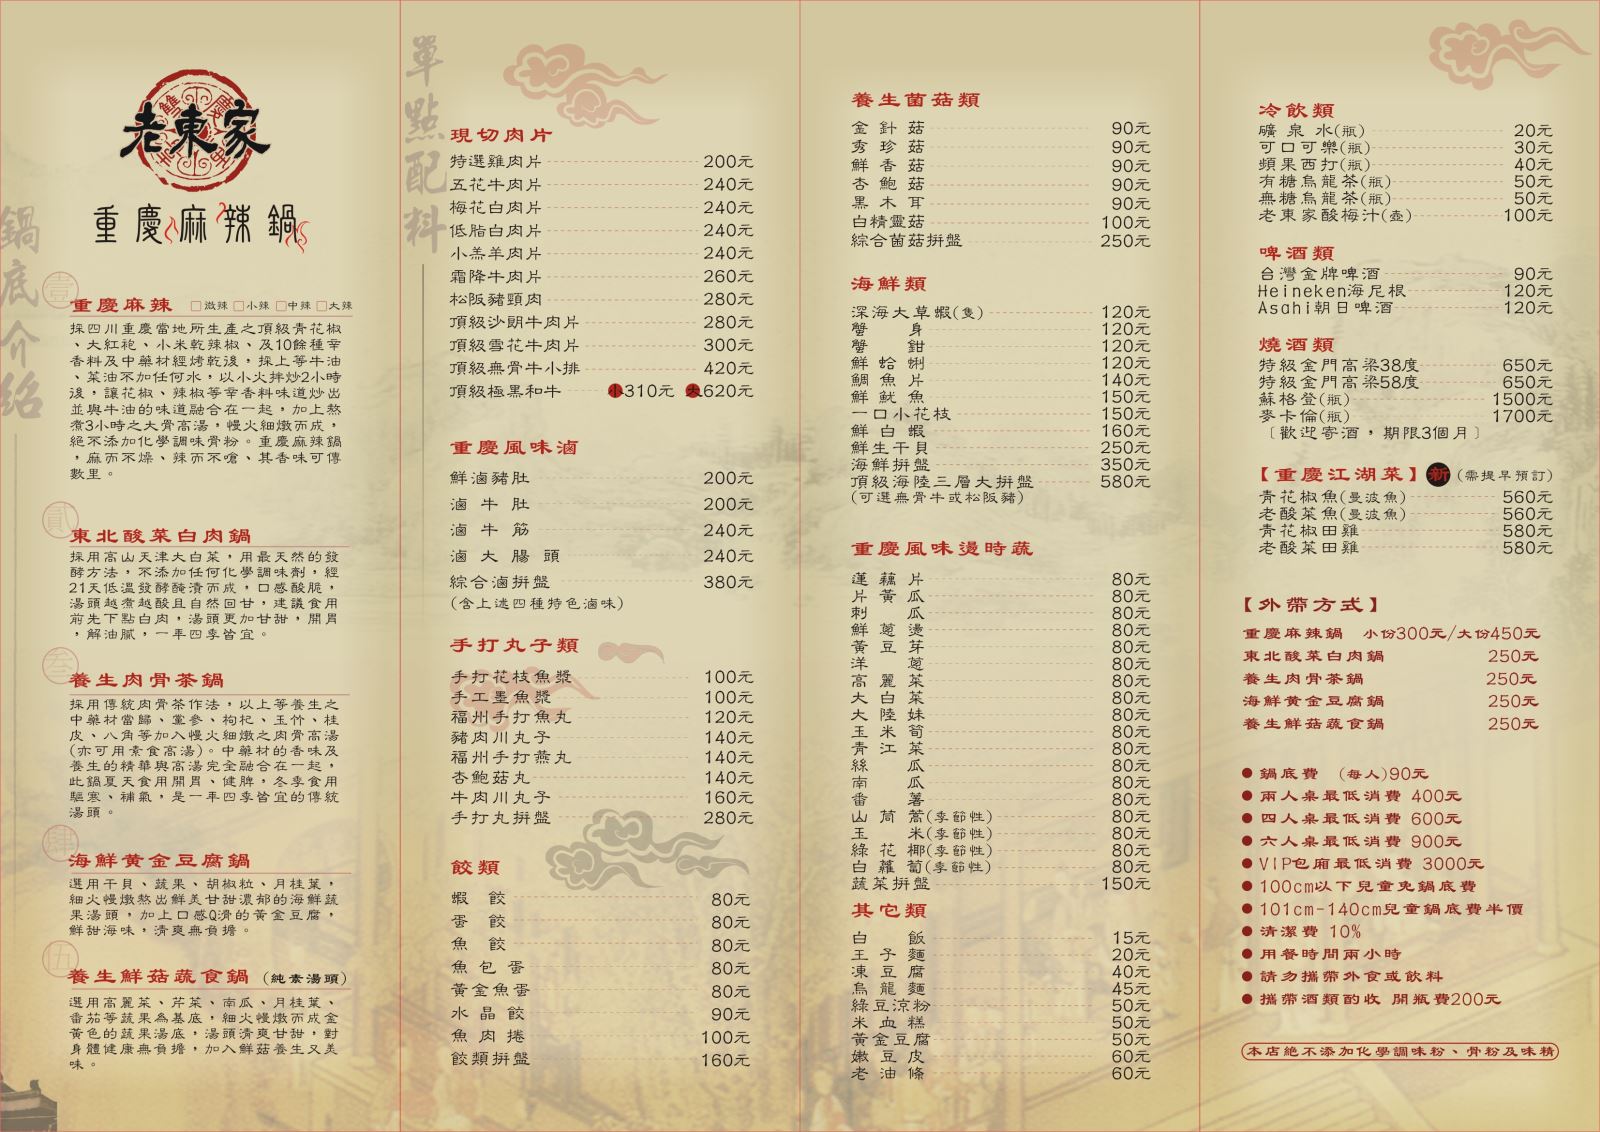 鍋底介紹
老東家
重慶麻辣鍋
壹
重慶麻辣 □微辣 □小辣 □中辣 □大辣
採四川重慶當地所生產之頂級青花椒
、大紅袍、小米乾辣椒、及10餘種辛
香料及中藥材經烤乾後，採上等牛油
、菜油不加任何水，以小火拌炒2小時
後，讓花椒、辣椒等辛香料味道炒出
並與牛油的味道融合在一起，加上熬
煮3小時之大骨高湯，慢火細燉而成，
絕不添加化學調味骨粉。重慶麻辣鍋
，麻而不燥、辣而不嗆、其香味可傳
數里。
貳
東北酸菜白肉鍋
採用高山天津大白菜，用最天然的發
酵方法，不添加任何化學調味劑，經
21天低溫發酵醃漬而成，口感酸脆，
湯頭越煮越酸且自然回甘，建議食用
前先下點白肉，湯頭更加甘甜，開胃
，解油膩，一年四季皆宜。
叁
養生肉骨茶鍋
採用傳統肉骨茶作法，以上等養生之
中藥材當歸、黨參、枸杞、玉竹、桂
皮、八角等加入慢火細燉之肉骨高湯
(亦可用素食高湯)。中藥材的香味及
養生的精華與高湯完全融合在一起，
此鍋夏天食用開胃、健脾，冬季食用
驅寒、補氣，是一年四季皆宜的傳統
湯頭。
肆
海鮮黃金豆腐鍋
選用干貝、蔬果、胡椒粒、月桂葉，
細火慢燉熬出鮮美甘甜濃郁的海鮮蔬
果湯頭，加上口感Q滑的黃金豆腐，
鮮甜海味，清爽無負擔。
伍
養生鮮菇蔬食鍋 (純素湯頭)
選用高麗菜、芹菜、南瓜、月桂葉、
番茄等蔬果為基底，細火慢燉而成金
黃色的蔬果湯底，湯頭清爽甘甜，對
身體健康無負擔，加入鮮菇養生又美
味。
單點配料
現切肉片
特選雞肉片 200元
五花牛肉片 240元
梅花白肉片 240元
低脂白肉片 240元
小羔羊肉片 240元
霜降牛肉片 260元
松阪豬頸肉 280元
頂級沙朗牛肉片 280元
頂級雪花牛肉片 300元
頂級無骨牛小排 420元
頂級極黑和牛 小310元 大620元
重慶風味滷
鮮滷豬肚 200元
滷牛肚 200元
滷牛筋 240元
滷大腸頭 240元
綜合滷拼盤 380元
(含上述四種特色滷味)
手打丸子類
手打花枝魚漿 100元
手工墨魚漿 100元
福州手打魚丸 120元
豬肉川丸子 140元
福州手打燕丸 140元
杏鮑菇丸 140元
牛肉川丸子 160元
手打丸拼盤 280元
餃類
蝦餃 80元
蛋餃 80元
魚餃 80元
魚包蛋 80元
黃金魚蛋 80元
水晶餃 90元
魚肉捲 100元
餃類拼盤 160元
養生菌菇類
金針菇 90元
秀珍菇 90元
鮮香菇 90元
杏鮑菇 90元
黑木耳 90元
白精靈菇 100元
綜合菌菇拼盤 250元
海鮮類
深海大草蝦(隻) 120元
蟹身 120元
蟹鉗 120元
鮮蛤蜊 120元
鯛魚片 140元
鮮魷魚 150元
一口小花枝 150元
鮮白蝦 160元
鮮生干貝 250元
海鮮拼盤 350元
頂級海陸三層大拼盤 580元
(可選無骨牛或松阪豬)
重慶風味燙時蔬
蓮藕片 80元
片黃瓜 80元
刺瓜 80元
鮮蔥燙 80元
黃豆芽 80元
洋蔥 80元
高麗菜 80元
大白菜 80元
大陸妹 80元
玉米筍 80元
青江菜 80元
絲瓜 80元
南瓜 80元
番薯 80元
山茼蒿(季節性) 80元
玉米(季節性) 80元
綠花椰(季節性) 80元
白蘿蔔(季節性) 80元
蔬菜拼盤 150元
其它類
白飯 15元
王子麵 20元
凍豆腐 40元
烏龍麵 45元
綠豆涼粉 50元
米血糕 50元
黃金豆腐 50元
嫩豆皮 60元
老油條 60元
冷飲類
礦泉水(瓶) 20元
可口可樂(瓶) 30元
蘋果西打(瓶) 40元
有糖烏龍茶(瓶) 50元
無糖烏龍茶(瓶) 50元
老東家酸梅汁(壺) 100元
啤酒類
台灣金牌啤酒 90元
Heineken海尼根 120元
Asahi朝日啤酒 120元
燒酒類
特級金門高梁38度 650元
特級金門高梁58度 650元
蘇格登(瓶) 1500元
麥卡倫(瓶) 1700元
〔歡迎寄酒，期限3個月〕
【重慶江湖菜】 新 (需提早預訂)
青花椒魚(曼波魚) 560元
老酸菜魚(曼波魚) 560元
青花椒田雞 580元
老酸菜田雞 580元
【外帶方式】
重慶麻辣鍋 小份300元/大份450元
東北酸菜白肉鍋 250元
養生肉骨茶鍋 250元
海鮮黃金豆腐鍋 250元
養生鮮菇蔬食鍋 250元
● 鍋底費 (每人)90元
● 兩人桌最低消費 400元
● 四人桌最低消費 600元
● 六人桌最低消費 900元
● VIP包廂最低消費 3000元
● 100cm以下兒童免鍋底費
● 101cm-140cm兒童鍋底費半價
● 清潔費 10%
● 用餐時間兩小時
● 請勿攜帶外食或飲料
● 攜帶酒類酌收 開瓶費200元
本店絕不添加化學調味粉、骨粉及味精